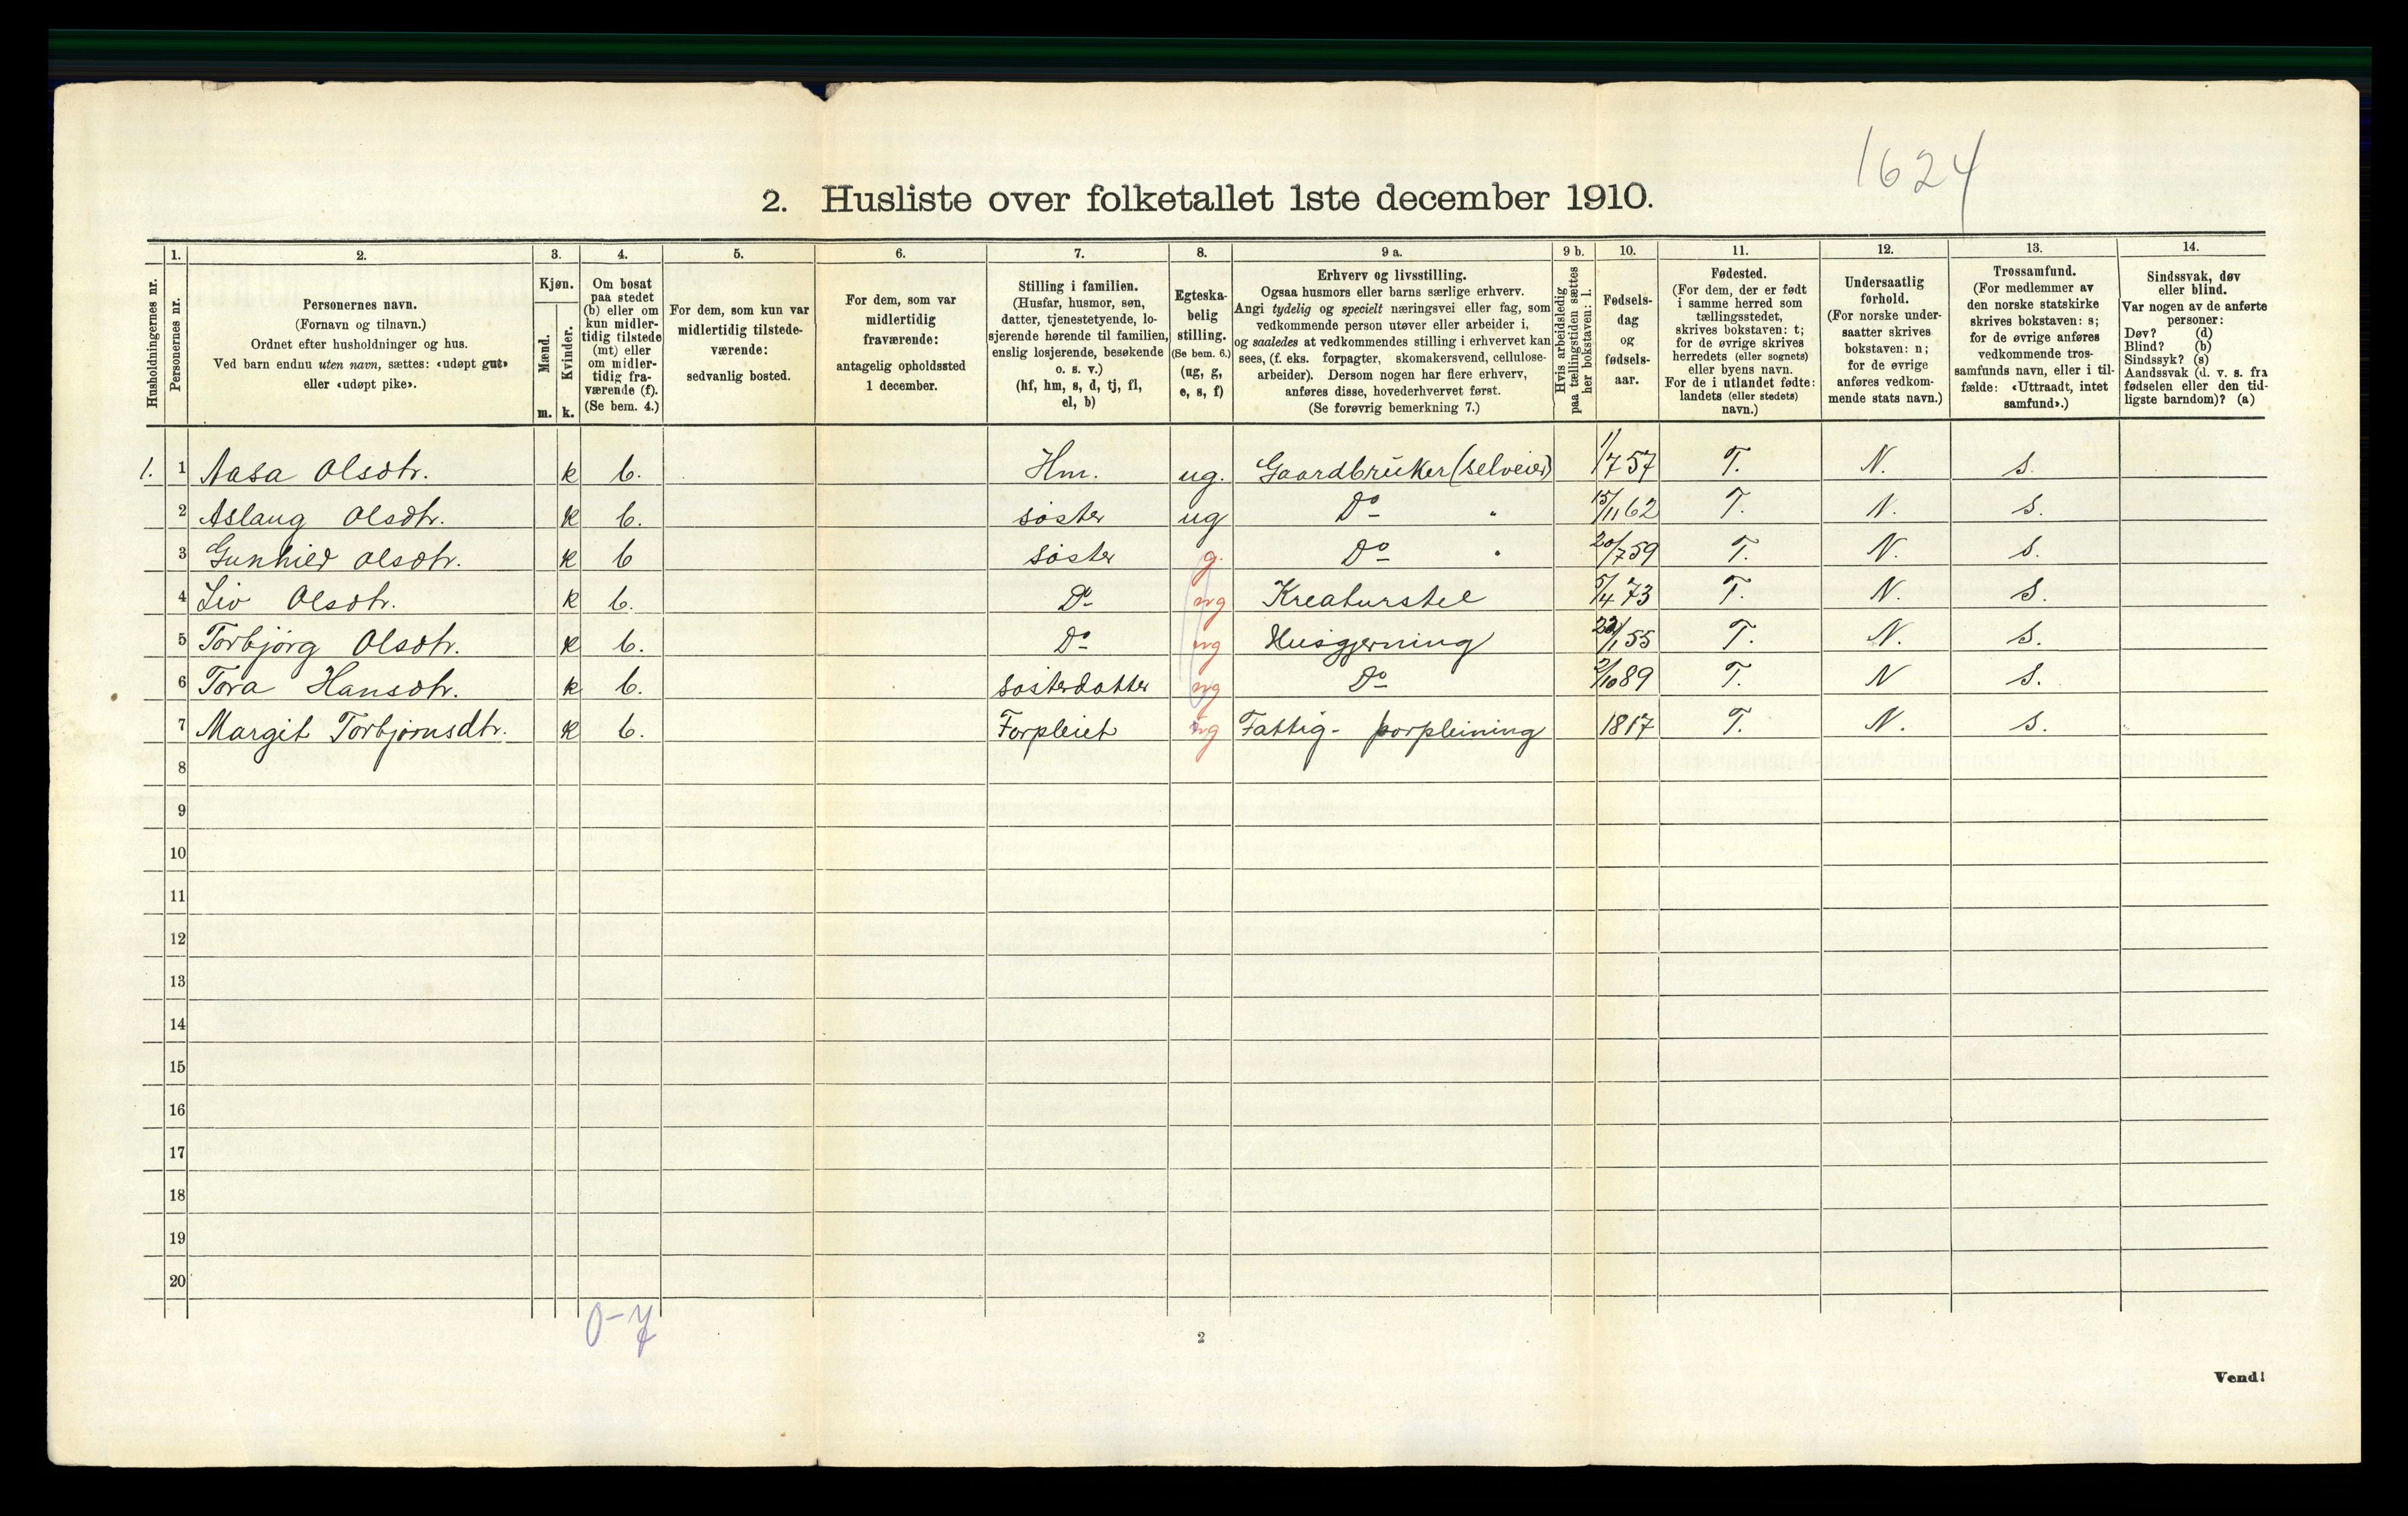 1624
2. Husliste over folketallet 1ste december 1910.
Husholdningernes nr.
1. Personernes nr.
2. Personernes navn.
(Fornavn og tilnavn.)
Ordnet efter husholdninger og hus.
Ved barn endnu uten navn, sættes: «udøpt gut»
eller «udøpt pike».
3. Kjøn.
Mænd. m.
Kvinder. k.
4. Om bosat
paa stedet
(b) eller om
kun midler-
tidig tilstede
(mt) eller
om midler-
tidig fra-
værende (f).
(Se bem. 4.)
5. For dem, som kun var
midlertidig tilstede-
værende:
sedvanlig bosted.
6. For dem, som var
midlertidig
fraværende:
antagelig opholdssted
1 december.
7. Stilling i familien.
(Husfar, husmor, søn,
datter, tjenestetyende, lo-
sjerende hørende til familien,
enslig losjerende, besøkende
o. s. v.)
(hf, hm, s, d, tj, fl,
el, b)
8. Egteska-
belig
stilling.
(Se bem. 6.)
(ug, g,
e, s, f)
9 a. Erhverv og livsstilling.
Ogsaa husmors eller barns særlige erhverv.
Angi tydelig og specielt næringsvei eller fag, som
vedkommende person utøver eller arbeider i,
og saaledes at vedkommendes stilling i erhvervet kan
sees, (f. eks. forpagter, skomakersvend, cellulose-
arbeider). Dersom nogen har flere erhverv,
anføres disse, hovederhvervet først.
(Se forøvrig bemerkning 7.)
9 b. Hvis arbeidsledig
paa tællingstiden sættes
her bokstaven: l.
10. Fødsels-
dag
og
fødsels-
aar.
11. Fødested.
(For dem, der er født
i samme herred som
tællingsstedet,
skrives bokstaven: t;
for de øvrige skrives
herredets (eller sognets)
eller byens navn.
For de i utlandet fødte:
landets (eller stedets)
navn.)
12. Undersaatlig
forhold.
(For norske under-
saatter skrives
bokstaven: n;
for de øvrige
anføres vedkom-
mende stats navn.)
13. Trossamfund.
(For medlemmer av
den norske statskirke
skrives bokstaven: s;
for de øvrige anføres
vedkommende tros-
samfunds navn, eller i til-
fælde: «Uttraadt, intet
samfund».)
14. Sindssvak, døv
eller blind.
Var nogen av de anførte
personer:
Døv? (d)
Blind? (b)
Sindssyk? (s)
Aandssvak (d. v. s. fra
fødselen eller den tid-
ligste barndom)? (a)
1. 1 Aasa Olsdtr. k b. Hm. ug. Gaardbruker (selveier) 1/7 57 T. N. s.
2 Aslaug Olsdtr. k b. søster ug Do " 15/11 62 T. N. s.
3 Gunhild Olsdtr. k b søster g. Do " 20/7 59 T. N. s.
4 Liv Olsdtr. k b. Do ug Kreaturstel 5/4 73 T. N. s.
5 Torbjørg Olsdtr. k b. Do ug Husgjerning 55 T. N. s.
6 Tora Hansdtr. k b. søsterdatter ug Do 2/10 89 T. N s.
7 Margit Torbjørnsdtr. k b. Forpleiet ug Fattig-forpleining 1817 T. N. s.
8
9
10
11
12
13
14
15
16
17
18
19
20
0-7
2
Vend!